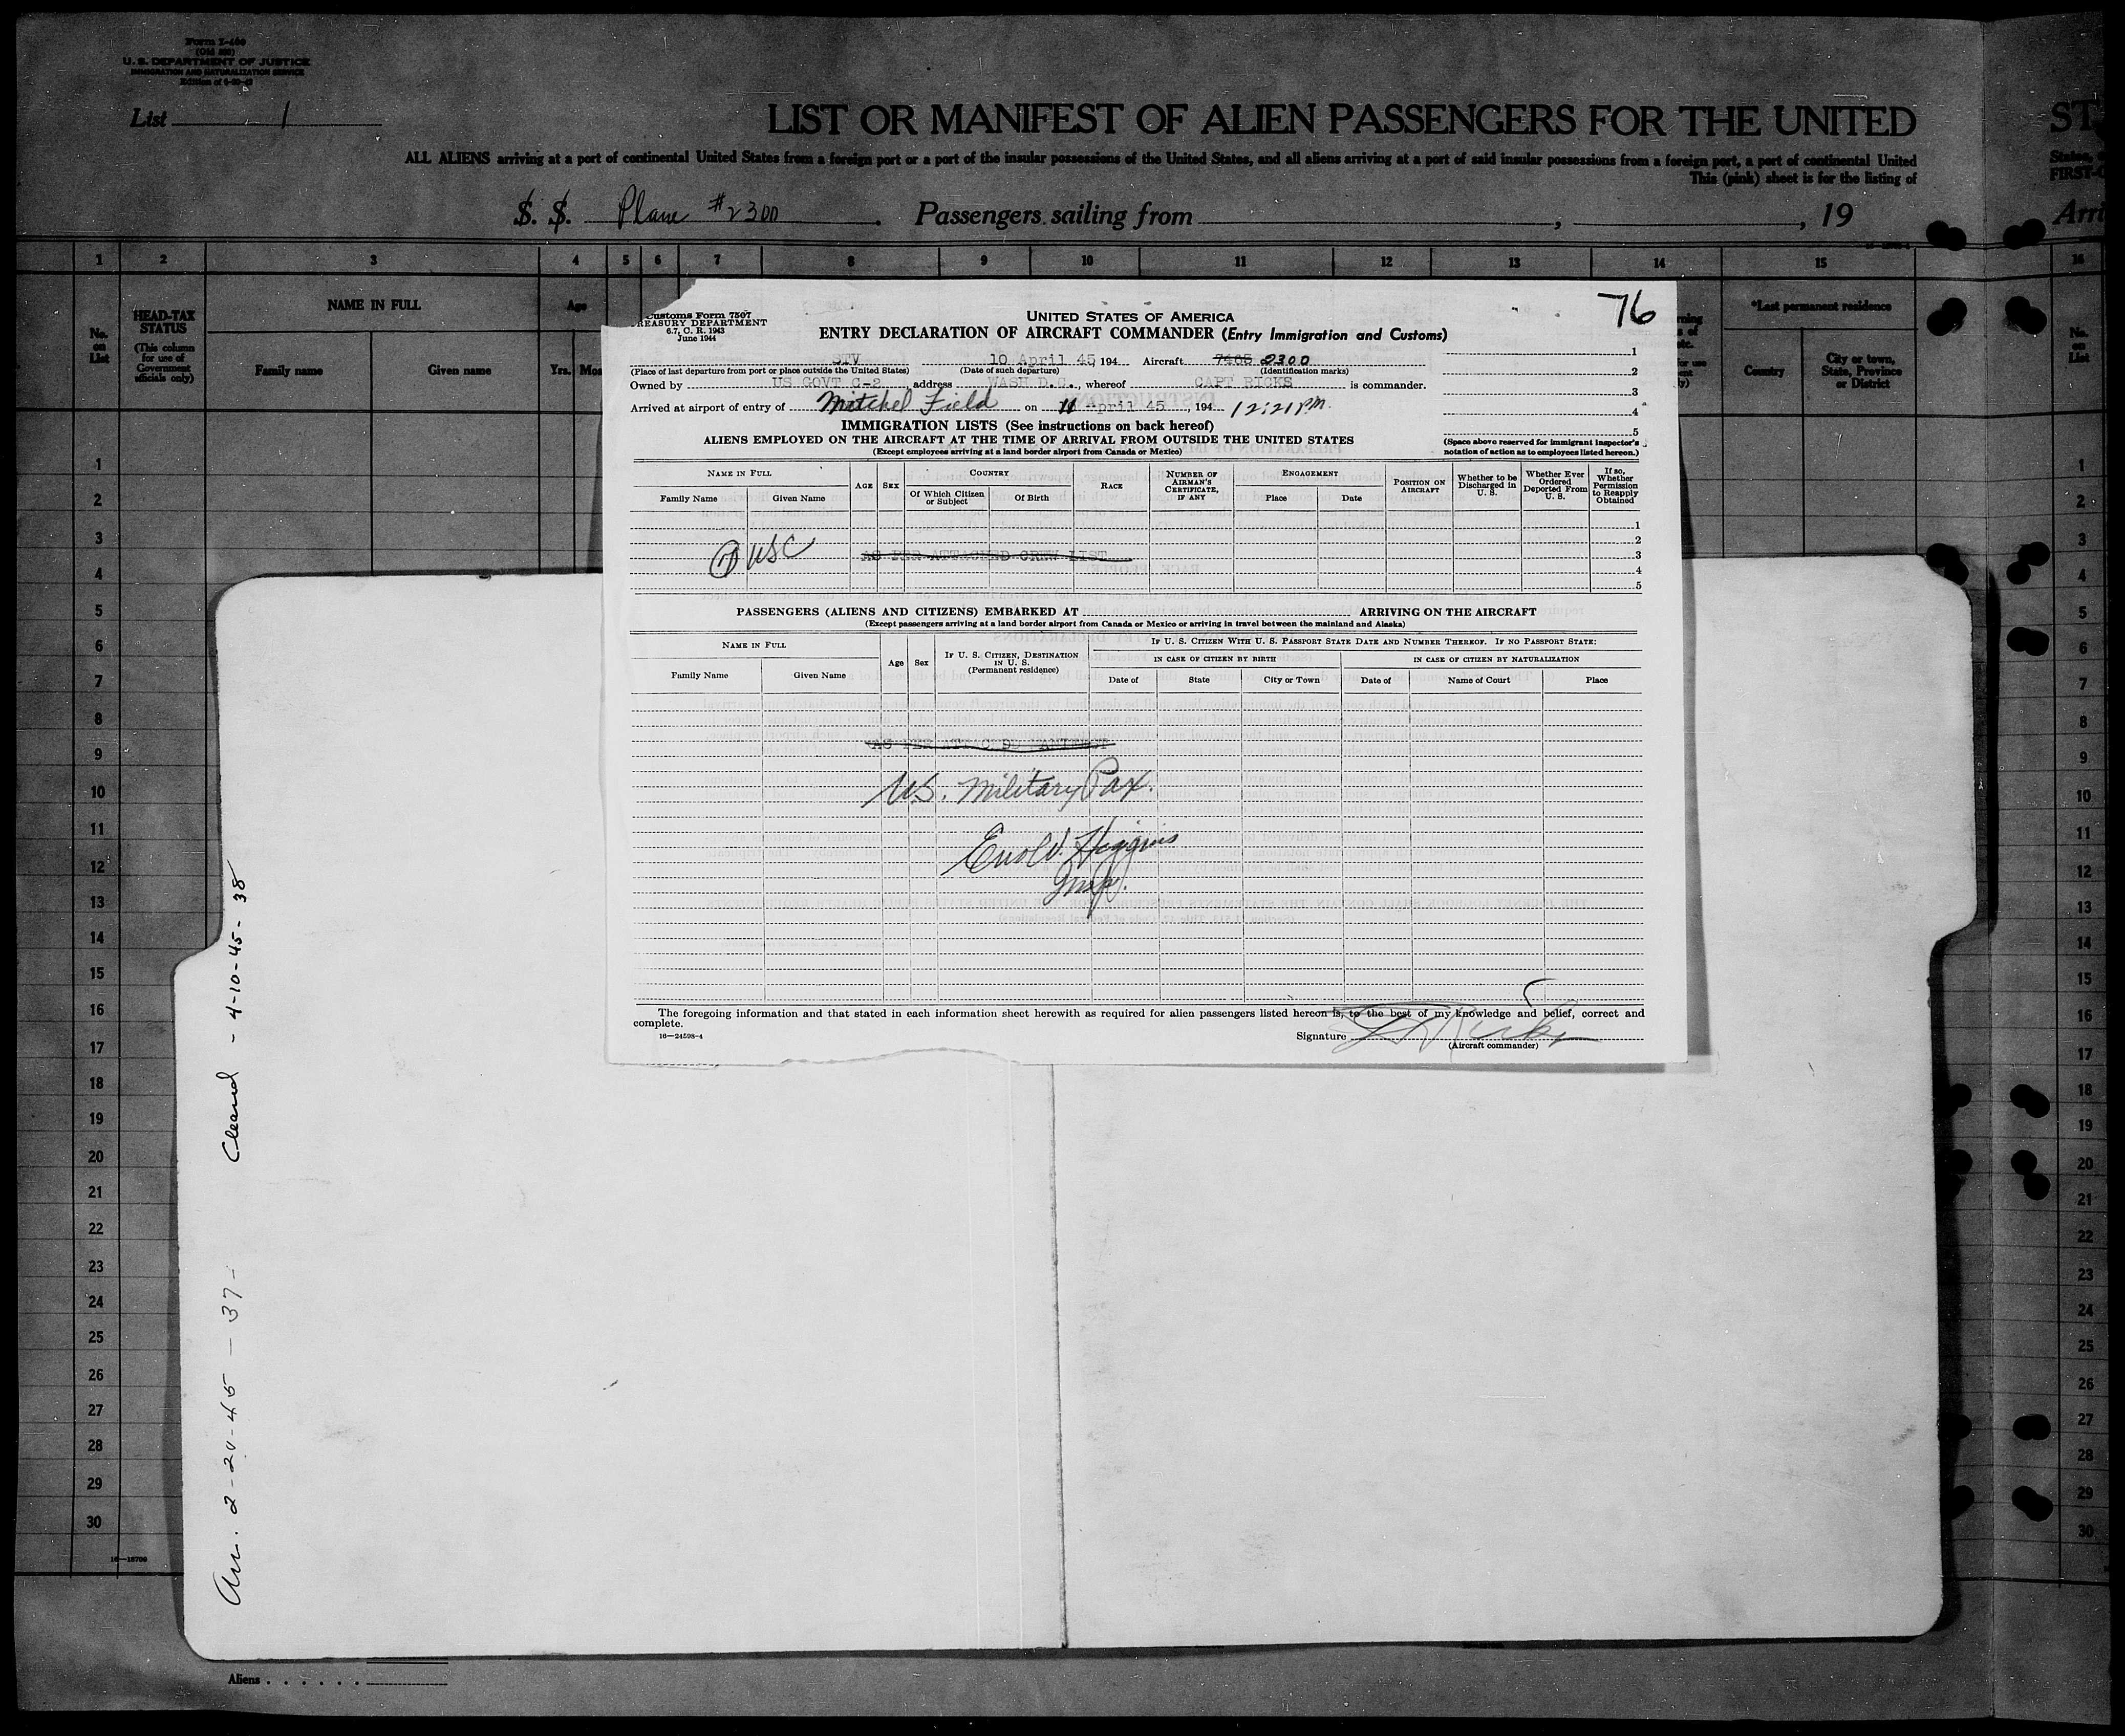 Form I-466
(Old 500)
U. S. DEPARTMENT OF JUSTICE
IMMIGRATION AND NATURALIZATION SERVICE
List 1
LIST OR MANIFEST OF ALIEN PASSENGERS FOR THE UNITED
ST
ALL ALIENS arriving at a port of continental United States from a foreign port or a port of the insular possessions of the United States, and all aliens arriving at a port of said insular possessions from a foreign port, a port of continental United
States,
This (pink) sheet is for the listing of
FIRST-C
S. S. Plane #2300 . Passengers sailing from , , 19
Arri
1 2 3 4 5 6 7 8 9 10 11 12 13 14 15 16
No. on List
HEAD-TAX STATUS
(This column for use of Government officials only)
NAME IN FULL
Family name Given name
Age
Yrs. Mos
*Last permanent residence
Country City or town, State, Province or District
No. on List
76
Customs Form 7507
TREASURY DEPARTMENT
6.7, C. R. 1943
June 1944
UNITED STATES OF AMERICA
ENTRY DECLARATION OF AIRCRAFT COMMANDER (Entry Immigration and Customs)
STV 10 April 45, 194 Aircraft 7465 2300
(Place of last departure from port or place outside the United States) (Date of such departure) (Identification marks)
Owned by US GOVT C-2, address WASH D.C., whereof CAPT RICKS is commander.
Arrived at airport of entry of Mitchel Field on 11 April 45, 194 12:21 PM.
1
2
3
4
5
(Space above reserved for immigrant inspector's notation of action as to employees listed hereon.)
IMMIGRATION LISTS (See instructions on back hereof)
ALIENS EMPLOYED ON THE AIRCRAFT AT THE TIME OF ARRIVAL FROM OUTSIDE THE UNITED STATES
(Except employees arriving at a land border airport from Canada or Mexico)
NAME IN FULL
Family Name Given Name
AGE SEX
COUNTRY
Of Which Citizen or Subject Of Birth
RACE
NUMBER OF AIRMAN'S CERTIFICATE, IF ANY
ENGAGEMENT
Place Date
POSITION ON AIRCRAFT
Whether to be Discharged in U. S.
Whether Ever Ordered Deported From U. S.
If so, Whether Permission to Reapply Obtained
1
2
3
4
5
7 USC AS PER ATTACHED CREW LIST
PASSENGERS (ALIENS AND CITIZENS) EMBARKED AT ARRIVING ON THE AIRCRAFT
(Except passengers arriving at a land border airport from Canada or Mexico or arriving in travel between the mainland and Alaska)
NAME IN FULL
Family Name Given Name
Age Sex
IF U. S. CITIZEN, DESTINATION IN U. S.
(Permanent residence)
IF U. S. CITIZEN WITH U. S. PASSPORT STATE DATE AND NUMBER THEREOF. IF NO PASSPORT STATE:
IN CASE OF CITIZEN BY BIRTH IN CASE OF CITIZEN BY NATURALIZATION
Date of State City or Town Date of Name of Court Place
AS PER
U.S. Military Pax.
Higgins
Insp.
The foregoing information and that stated in each information sheet herewith as required for alien passengers listed hereon is, to the best of my knowledge and belief, correct and
complete.
16—24598-4
Signature
(Aircraft commander)
1
2
3
4
5
6
7
8
9
10
11
12
13
14
15
16
17
18
19
20
21
22
23
24
25
26
27
28
29
30
16—18700
Arr. 2-20-45 — 37 -
Cleared - 4-10-45 - 38
Aliens
1
2
3
4
5
6
7
8
9
10
11
12
13
14
15
16
17
18
19
20
21
22
23
24
25
26
27
28
29
30